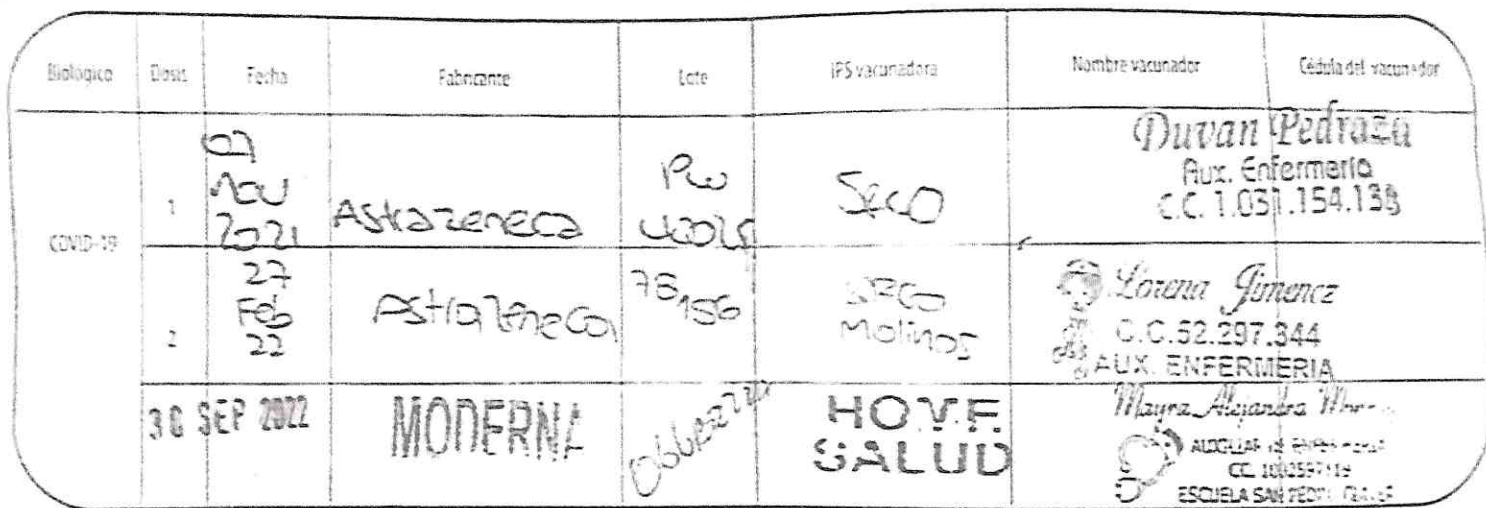 Biologico Dosis Fecha Fabricante Lote IPS vacunadora Nombre vacunador Cédula del vacunador
COVID-19
1
07
Nov
2021
Astrazeneca
Pw
Seco
Duvan Pedraza
Aux. Enfermeria
C.C. 1.031.154.138
2
27
Feb
22
Astrazeneca
78156
Seco
Molinos
Lorena Jimenez
C.C.52.297.344
AUX. ENFERMERIA
30 SEP 2022
MODERNA
HOVF
SALUD
Mayra Alejandra
AUXILIAR
CC.
ESCUELA SAN PEDRO CLAVER